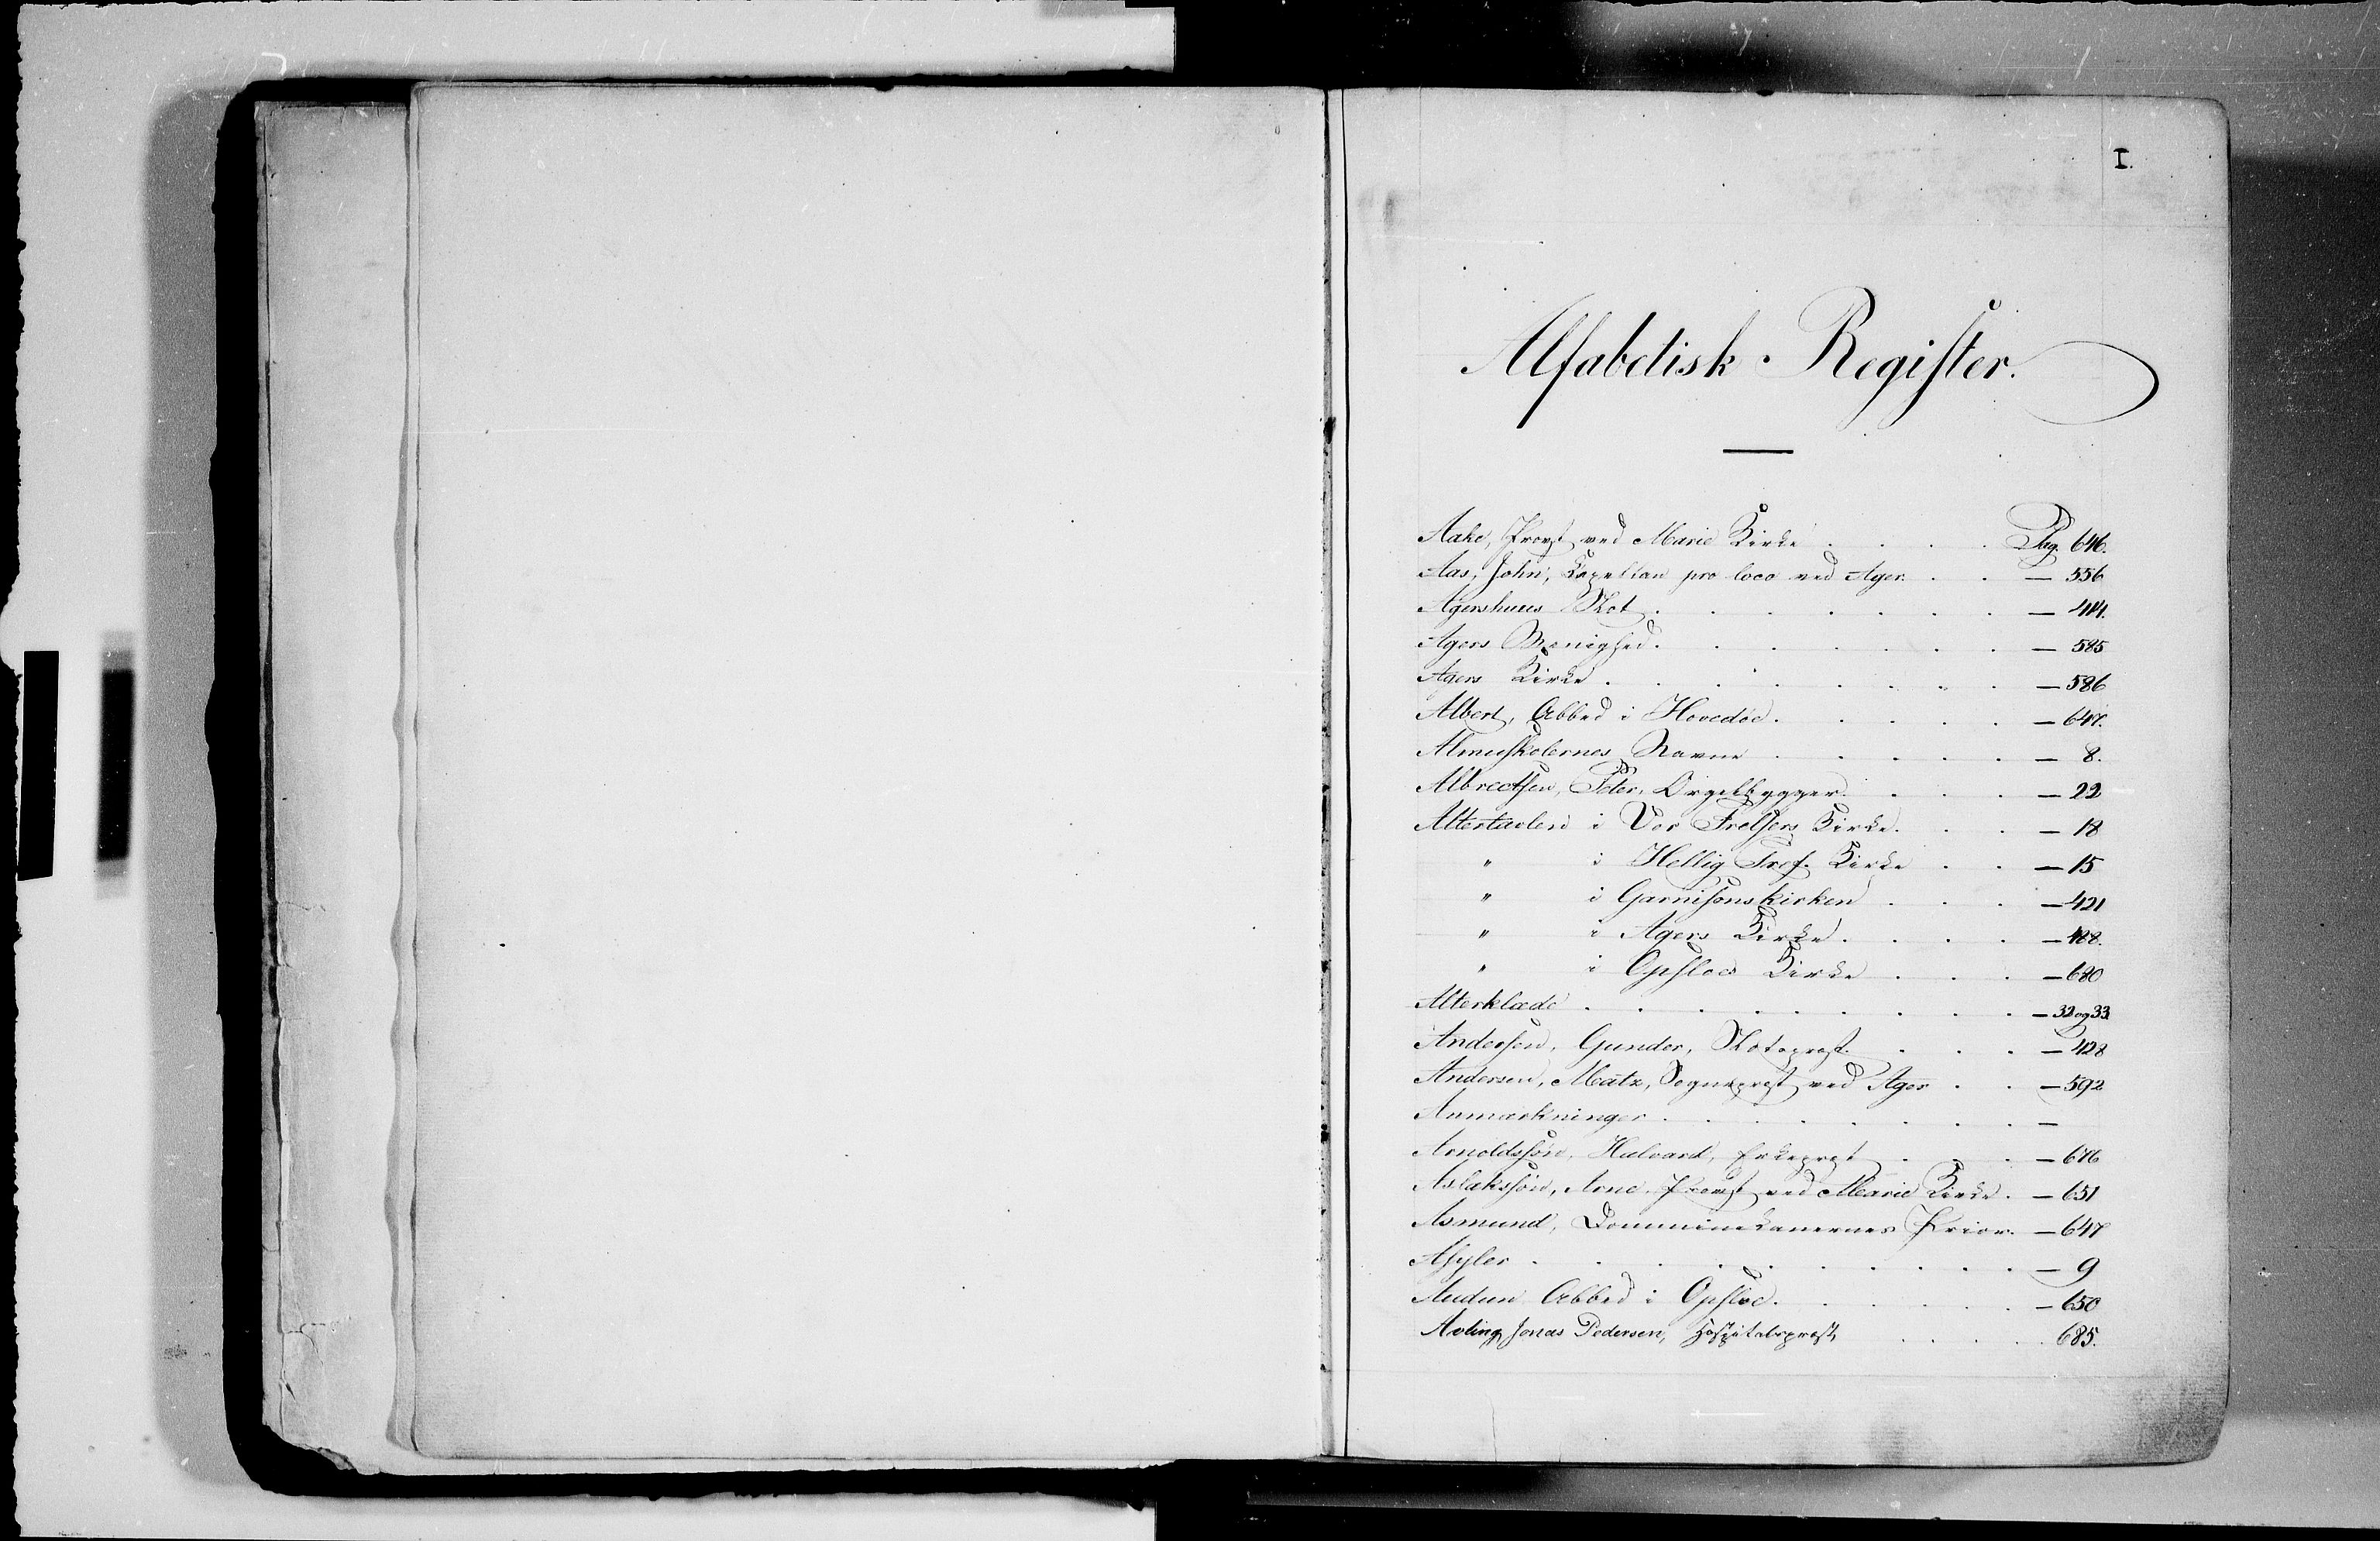 I.
Alfabetisk Register.
Aake, Provst ved Marie Kirke . . . . Pag. 646.
Aas, John, Kapellan pro loco ved Ager . . — 556
Agershuus Slot . . . . . . . — 414.
Agers Menighed. . . . . . . — 585
Agers Kirke . . . . . . . . — 586
Albert, Abbed i Hovedöe. . . . . — 647.
Almueskolernes Navne . . . . . — 8.
Albrectsen, Peter, Orgelbygger . . . — 22
Altertavlen i Vor Frelsers Kirke. . . — 18
" i Hellig Tref. Kirke . . — 15
" i Garnisonskirken . . . — 421
" i Agers Kirke . . . . — 488.
" i Opsloes Kirke . . . — 680
Alterklæde . . . . . . . . — 32 og 33.
Andersen, Gunder, Slotsprest. . . . — 428
Andersen, Matz, Sogneprest ved Ager . . — 592
Anmærkninger . . . . . . . —
Arnoldssön, Halvard, Erkeprest . . . — 676
Aslakssön, Arne, Provst ved Marie Kirke. — 651
Asmund, Dominikanernes Prior. — 647
Asyler . . . . . . . . . — 9
Audun Abbed i Opsloe. . . . . . — 650
Aoling Jonas Pedersen, Hospitalsprest, . . . . 685.